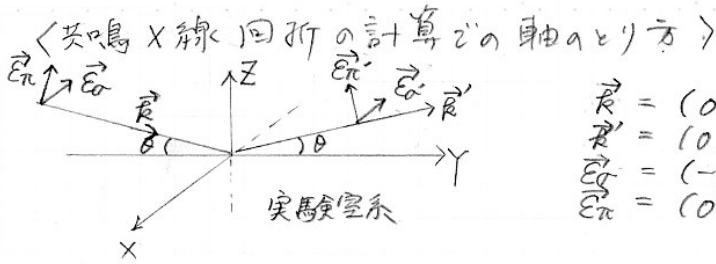 〈共鳴X線回折の計算での軸のとり方〉
ε⃗π ε⃗σ
k⃗
θ
Z
ε⃗π' ε⃗σ'
k⃗'
θ
Y
X
実験室系
k⃗ = (0
k⃗' = (0
ε⃗σ = (-
ε⃗π = (0